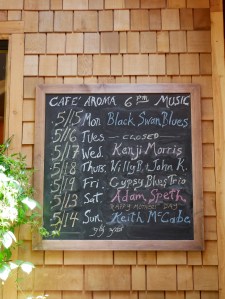 CAFE' AROMA 6 PM MUSIC
5/15 Mon. Black Swan Blues
5/16 Tues — CLOSED —
5/17 Wed. Kenji Morris
5/18 Thurs, Willy B, John K.
5/19 Fri. Gypsy Blues Trio
5/13 Sat. Adam Speth
HAPPY MOTHER'S DAY
5/14 Sun. Keith McCabe